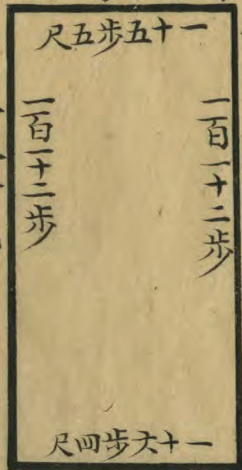 一十五步五尺
一百一十二步
一百一十二步
一十六步四尺